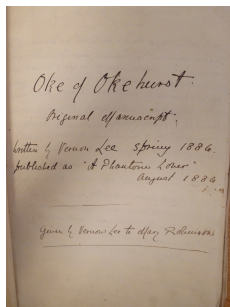 Oke of Okehurst.
Original Manuscript.
written by Vernon Lee spring 1886.
published as "A Phantom Lover"
August 1886
given by Vernon Lee to Mary Robinson